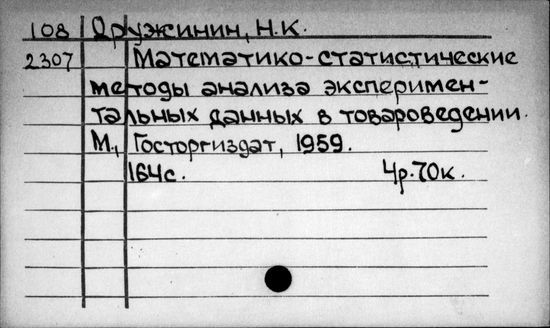 108 Дружинин, Н.К.
2307 Математико-статистические
методы анализа эксперимен-
тальных данных в товароведении.
М., Госторгиздат, 1959.
164с. 4р.70к.